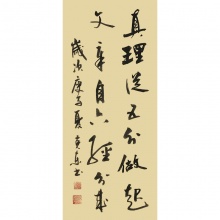 真理從五倫做起
文章自六經分來
歲次庚子夏書